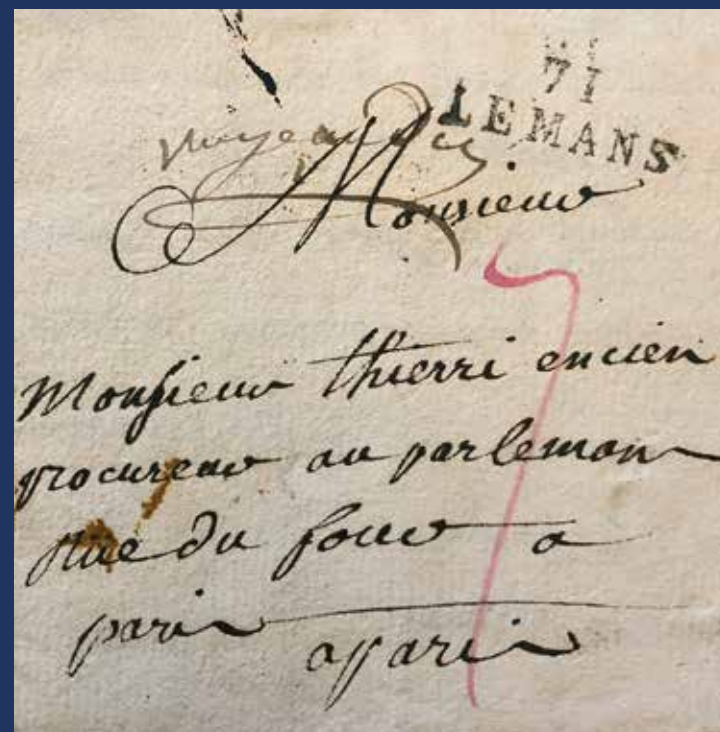 71
LE MANS
Monsieur
Monsieur thierri encien
procureur au parlemon
Rue du four a
paris
a paris